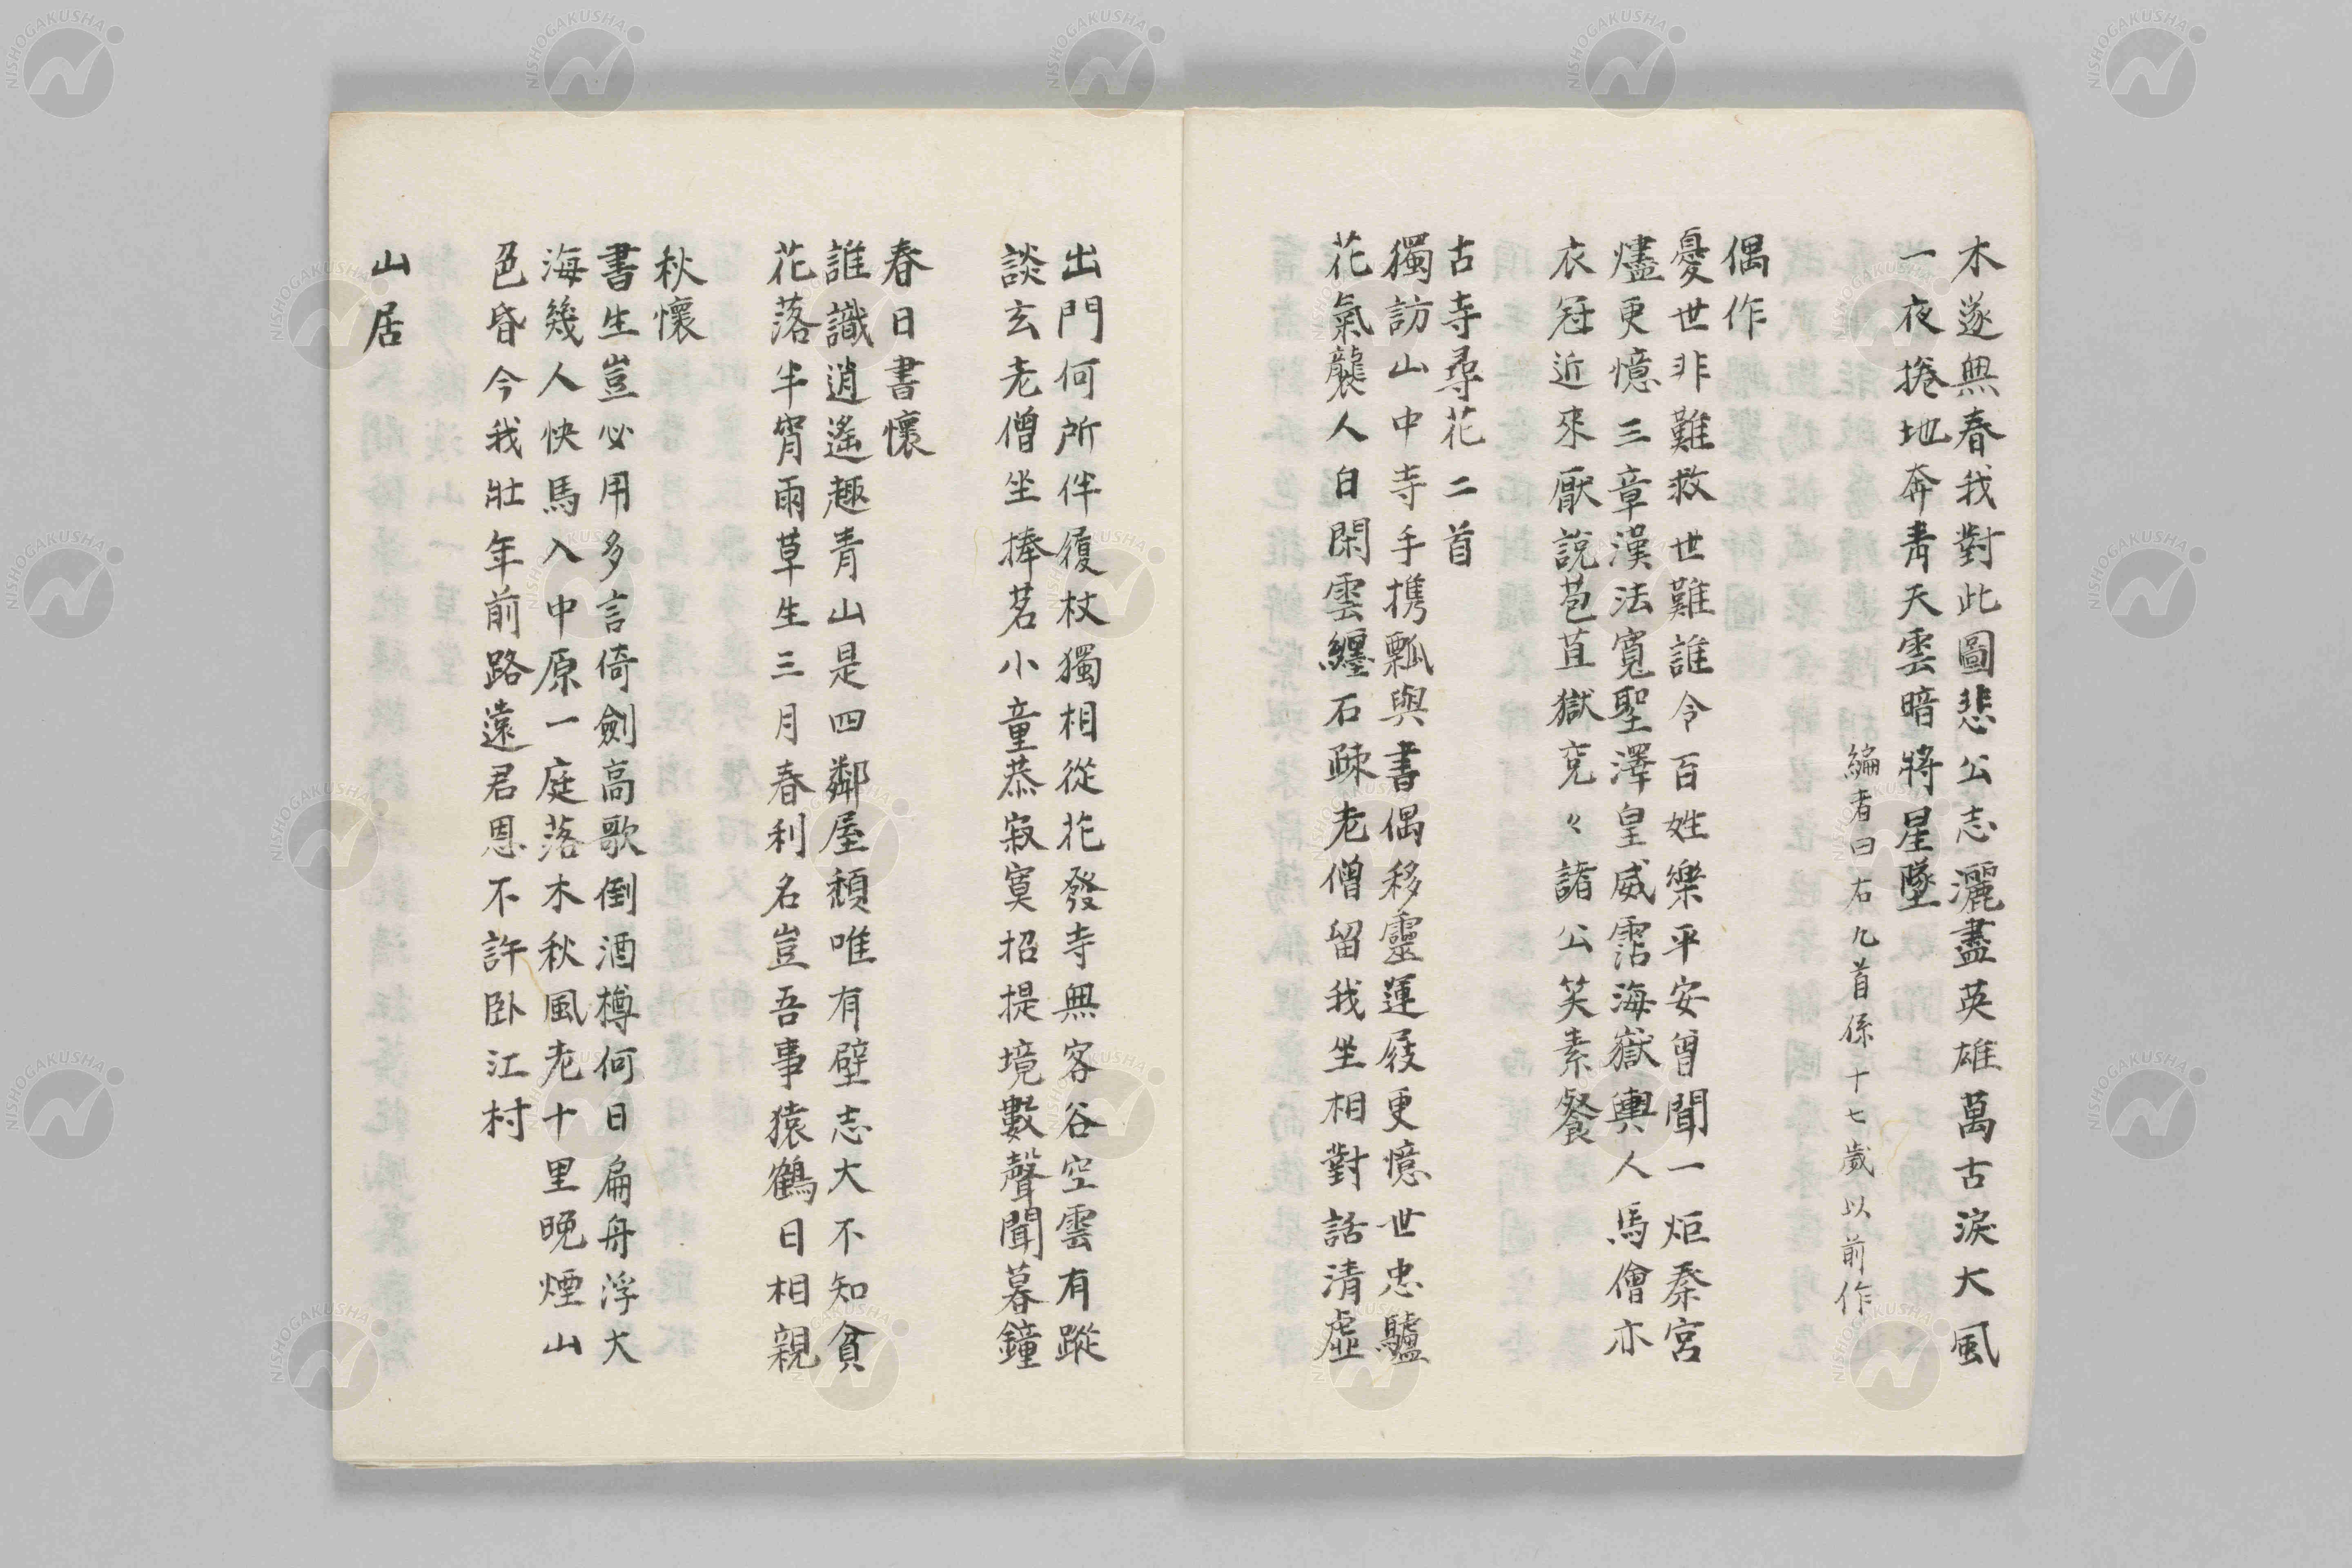 木遂無春我對此圖悲公志灑盡英雄萬古淚大風
一夜捲地奔靑天雲暗將星墜
編者曰右九首係十七歲以前作
偶作
憂世非難救世難誰令百姓樂平安曾聞一炬秦宮
燼更憶三章漢法寬聖澤皇威霑海嶽輿人馬儈亦
衣冠近來厭說苞苴獄兗々諸公笑素餐
古寺尋花二首
獨訪山中寺手携瓢與書偶移靈運屐更憶世忠驢
花氣襲人白閑雲纏石疎老僧留我坐相對話清虛
出門何所伴履杖獨相從花發寺無客谷空雲有蹤
談玄老僧坐捧茗小童恭寂寞招提境數聲聞暮鐘
春日書懷
誰識逍遙趣青山是四鄰屋頹唯有壁志大不知貧
花落半宵雨草生三月春利名豈吾事猿鶴日相親
秋懷
書生豈必用多言倚劍高歌倒酒樽何日扁舟浮大
海幾人快馬入中原一庭落木秋風老十里晚煙山
色昏今我壯年前路遠君恩不許臥江村
山居
NISHOGAKUSHA